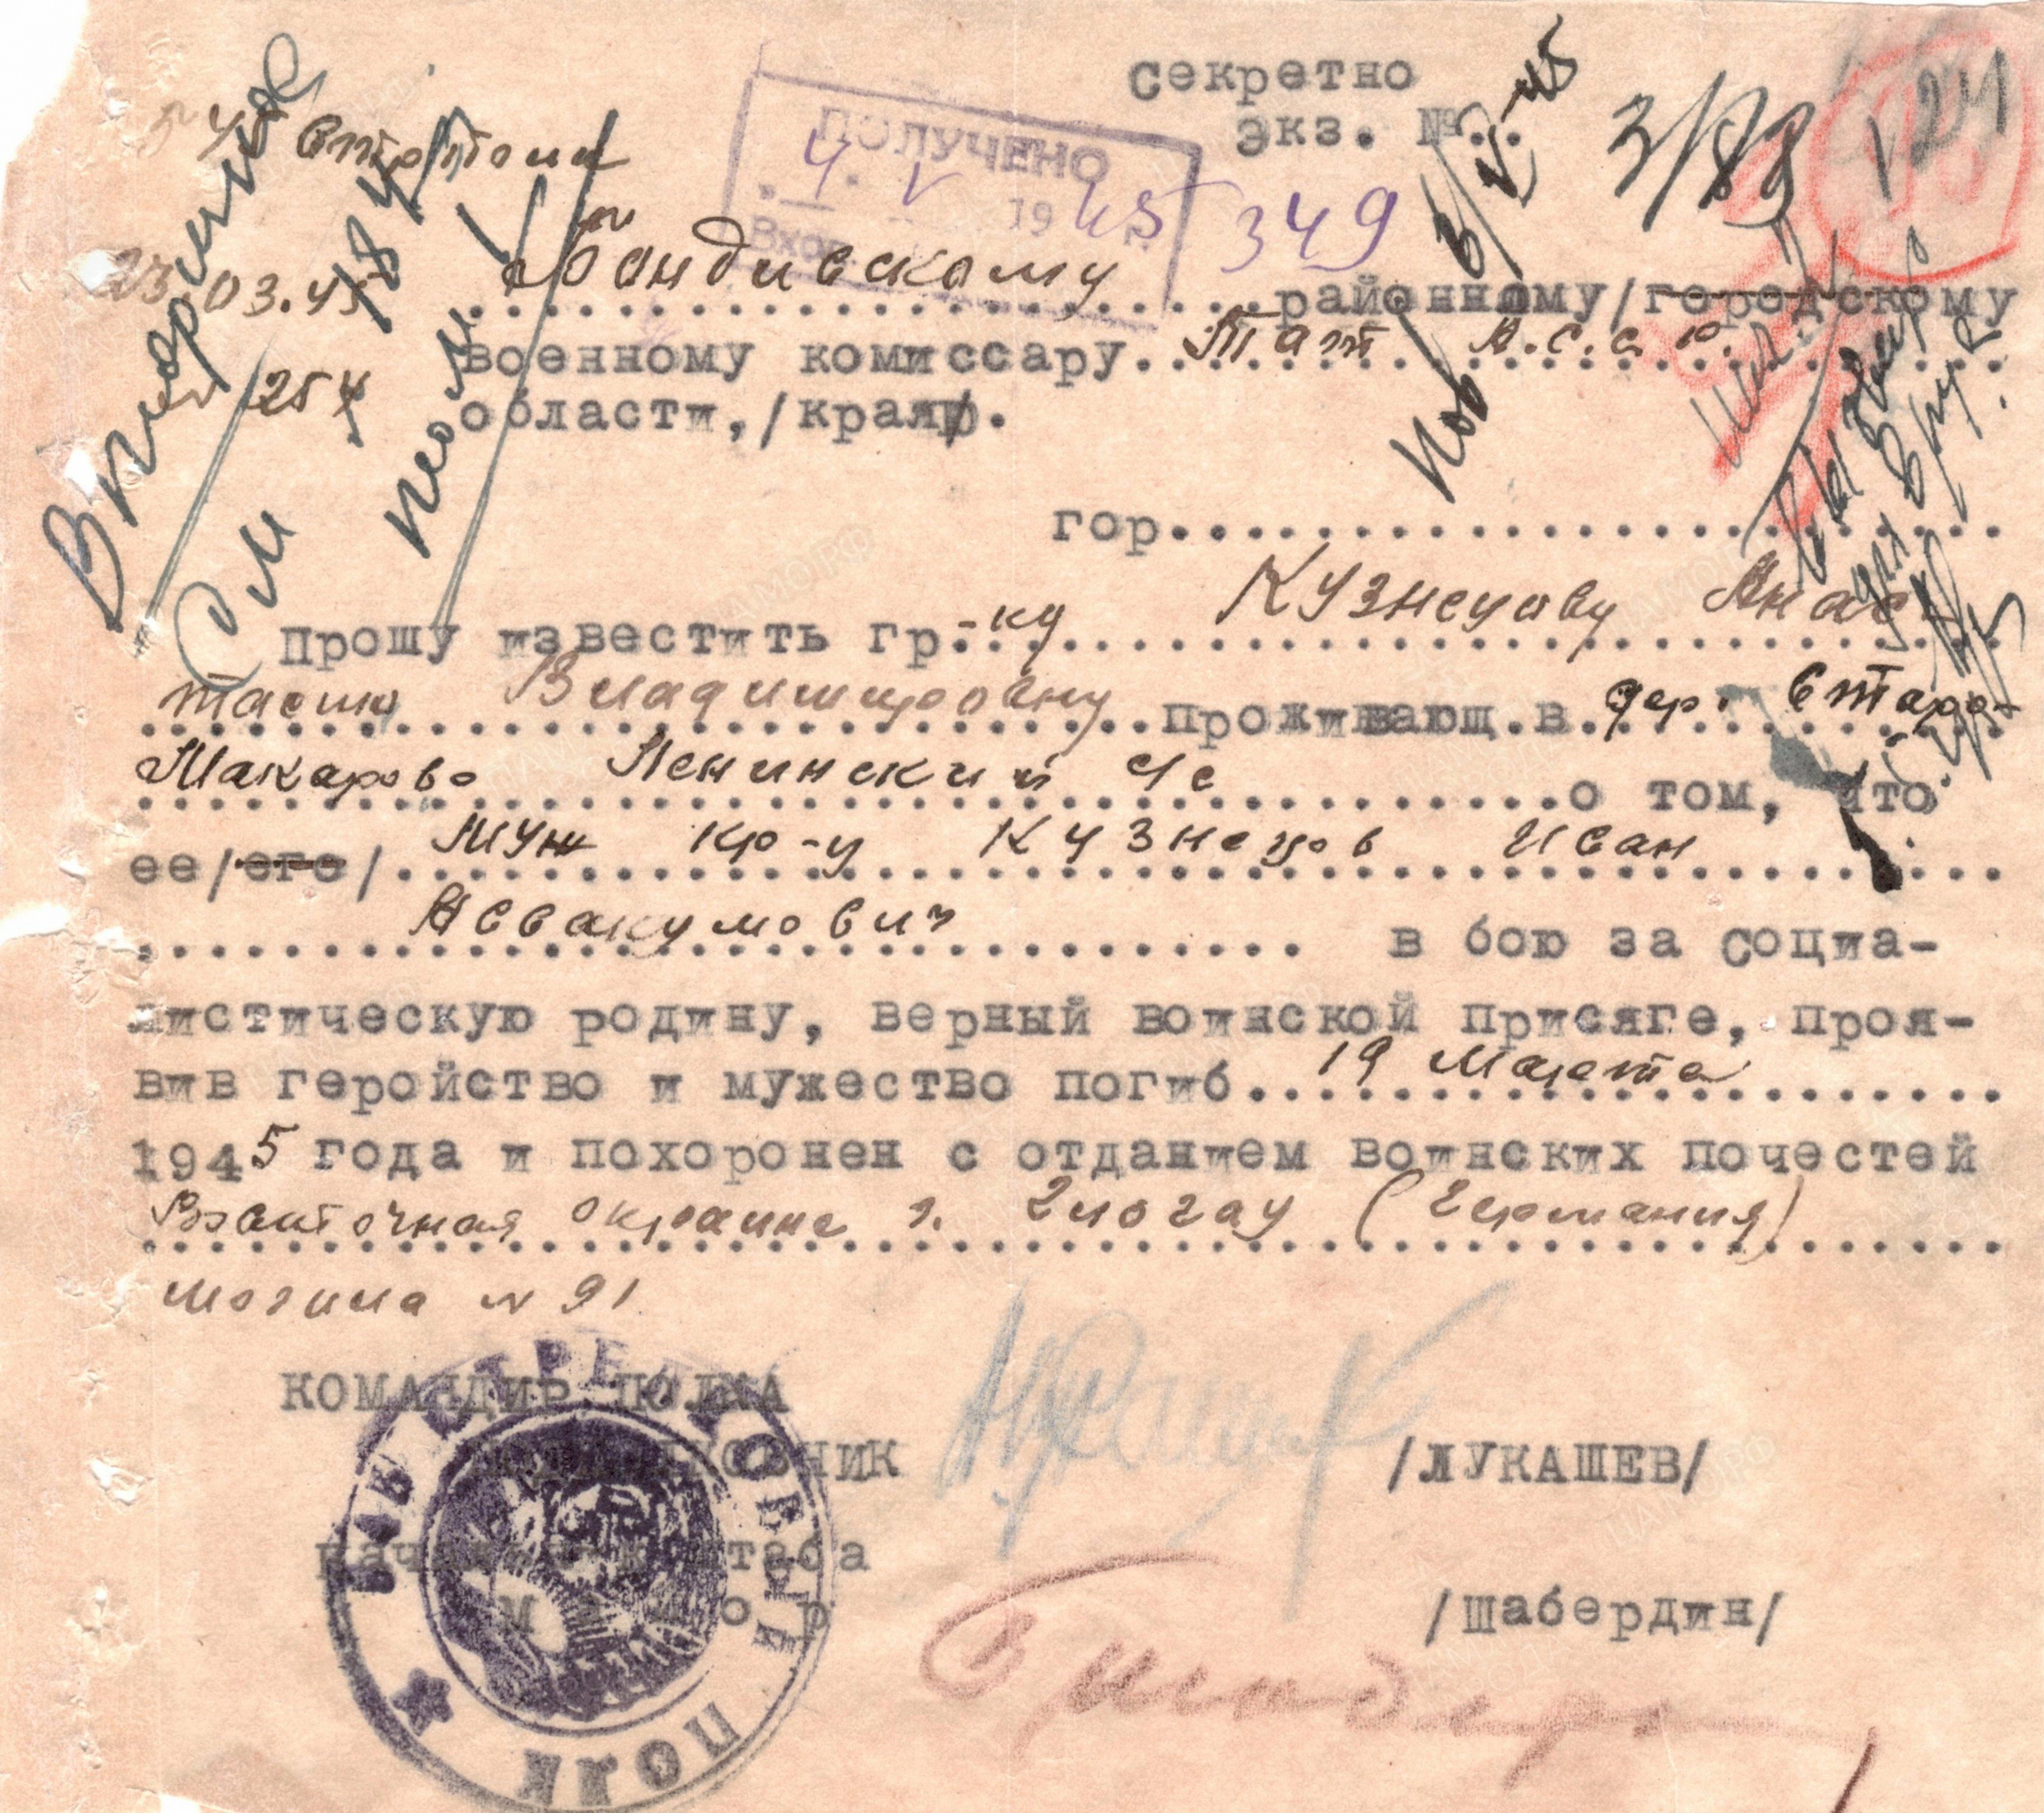 Секретно
Экз. №
3/83
ПОЛУЧЕНО
4. V 1945
Вход.
349
23.03.45
254
Вторично
См
районному/городскому
военному комиссару. Тат А.С.С.Р.
области,/края/.
гор.
Прошу известить гр.-ку Кузнецову Анас
тасию Владимировну проживающ.в. дер. Старо-
Макарово Ленинский с/с о том, что
ее/его/ муж кр-ц Кузнецов Иван
Аввакумович в бою за социа-
листическую родину, верный воинской присяге, проя-
вив геройство и мужество погиб 19 марта
1945 года и похоронен с отданием воинских почестей
Восточная окраина г. Глогау (Германия)
могила N 91
КОМАНДИР ПОЛКА
ПОДПОЛКОВНИК /ЛУКАШЕВ/
Начальник штаба
майор /Шабердин/
СТРЕЛКОВЫЙ ПОЛК